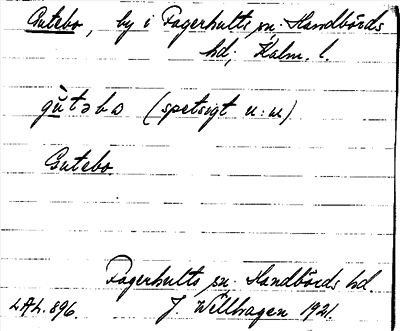 Gutebo, by i Fagerhults sn. Handbörds
hd, Kalm. l.
gù̀təbω (spetsigt u:u)
Gutebo
Fagerhults sn. Handbörds hd.
LAL. 896. J. Willhagen 1921.